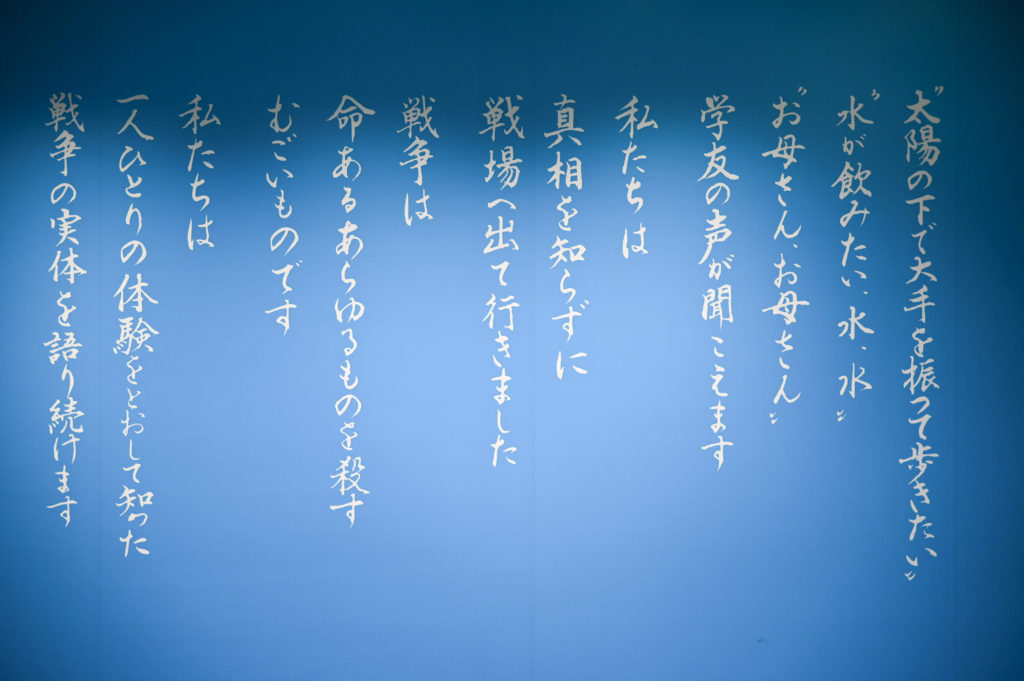 〝太陽の下で大手を振って歩きたい〟
〝水が飲みたい、水、水〟
〝お母さん、お母さん〟
学友の声が聞こえます
私たちは
真相を知らずに
戦場へ出て行きました
戦争は
命あるあらゆるものを殺す
むごいものです
私たちは
一人ひとりの体験をとおして知った
戦争の実体を語り続けます